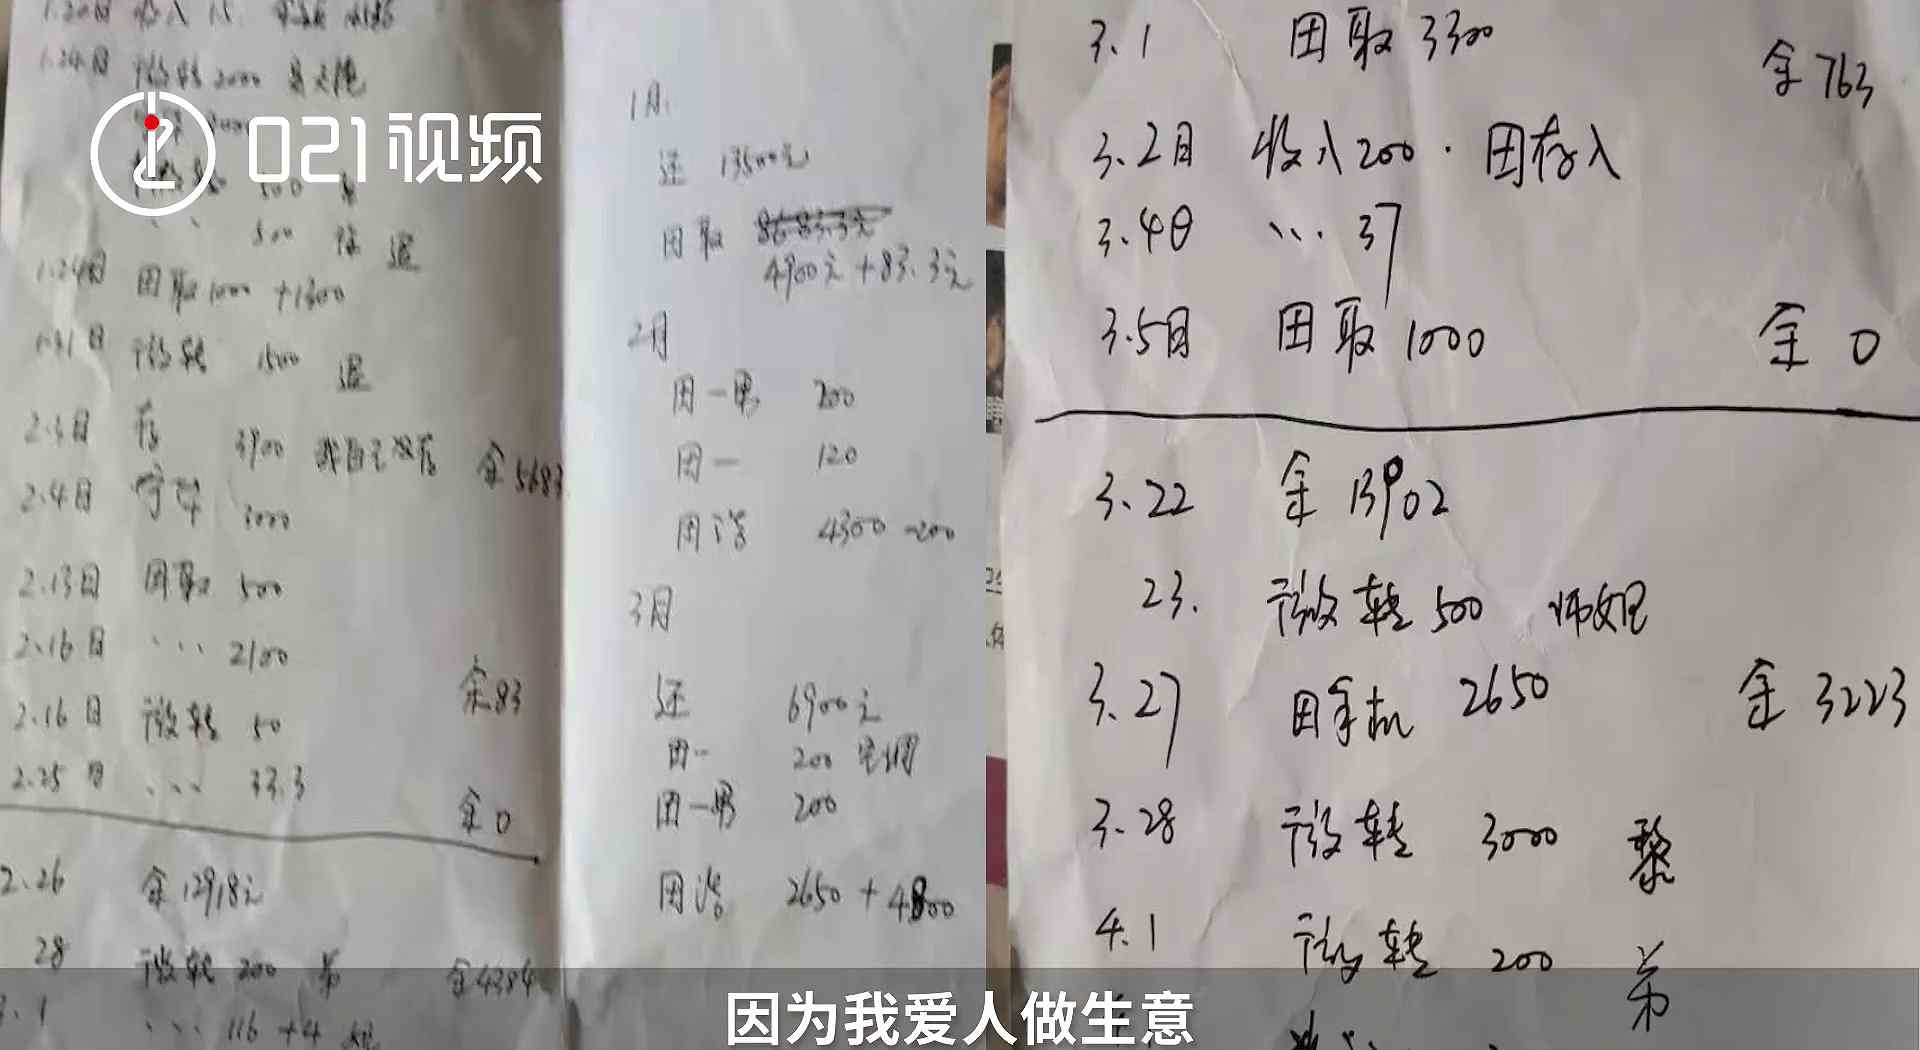 021视频
1.24日 微转 2000
500
500 退
1.24日 田取1000 +1300
1.31日 微转 1500 退
2.3日 存 3900 我自己没存 余5683
2.4日 3000
2.13日 田取 500
2.16日 ... 2100 余83
2.16日 微转 50
2.25日 ... 33.3 余0
2.26 余12918元
28 微转 200 弟 余4384
3.1 ... 116 +4
1月
还 13500元
田取 8683.3元
4900元+83.3元
2月
田一男 200
田一 120
田 4300 -200
3月
还 6900元
田一 200
田一男 200
田 2650 + 4800
3.1 田取3300 余763
3.2日 收入200.田存入
3.4日 ... 37
3.5日 田取 1000 余0
3.22 余13902
23. 微转 500 师姐
3.27 田手机 2650 余3223
3.28 微转 3000 黎
4.1 微转 200 弟
因为我爱人做生意